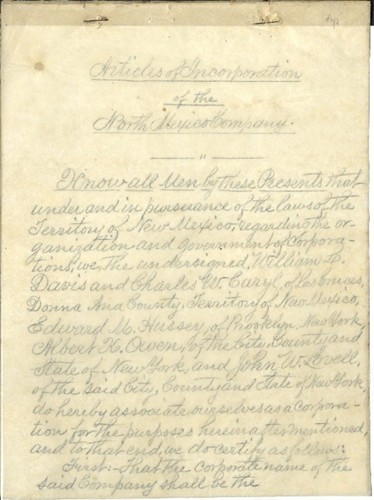 Articles of Incorporation
of the
North Mexico Company.
"
Know all Men by these Presents that
under and in pursuance of the laws of the
Territory of New Mexico, regarding the or-
ganization and government of Corpora-
tions, we, the undersigned, William P.
Davis and Charles W. Caryl, of Las Cruces,
Donna Ana County, Territory of New Mexico,
Edward M. Hussey, of Brooklyn, New York,
Albert K. Owen, of the City, County and
State of New York, and John W. Lovell,
of the said City, County and State of New York,
do hereby associate ourselves as a Corpora-
tion for the purposes hereinafter mentioned,
and to that end, we do certify as follows:
First:- That the corporate name of the
said Company shall be the